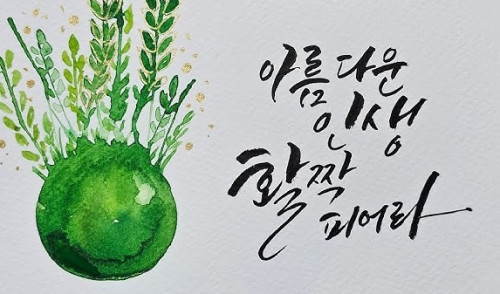 아름다운
인생
활짝
피어라